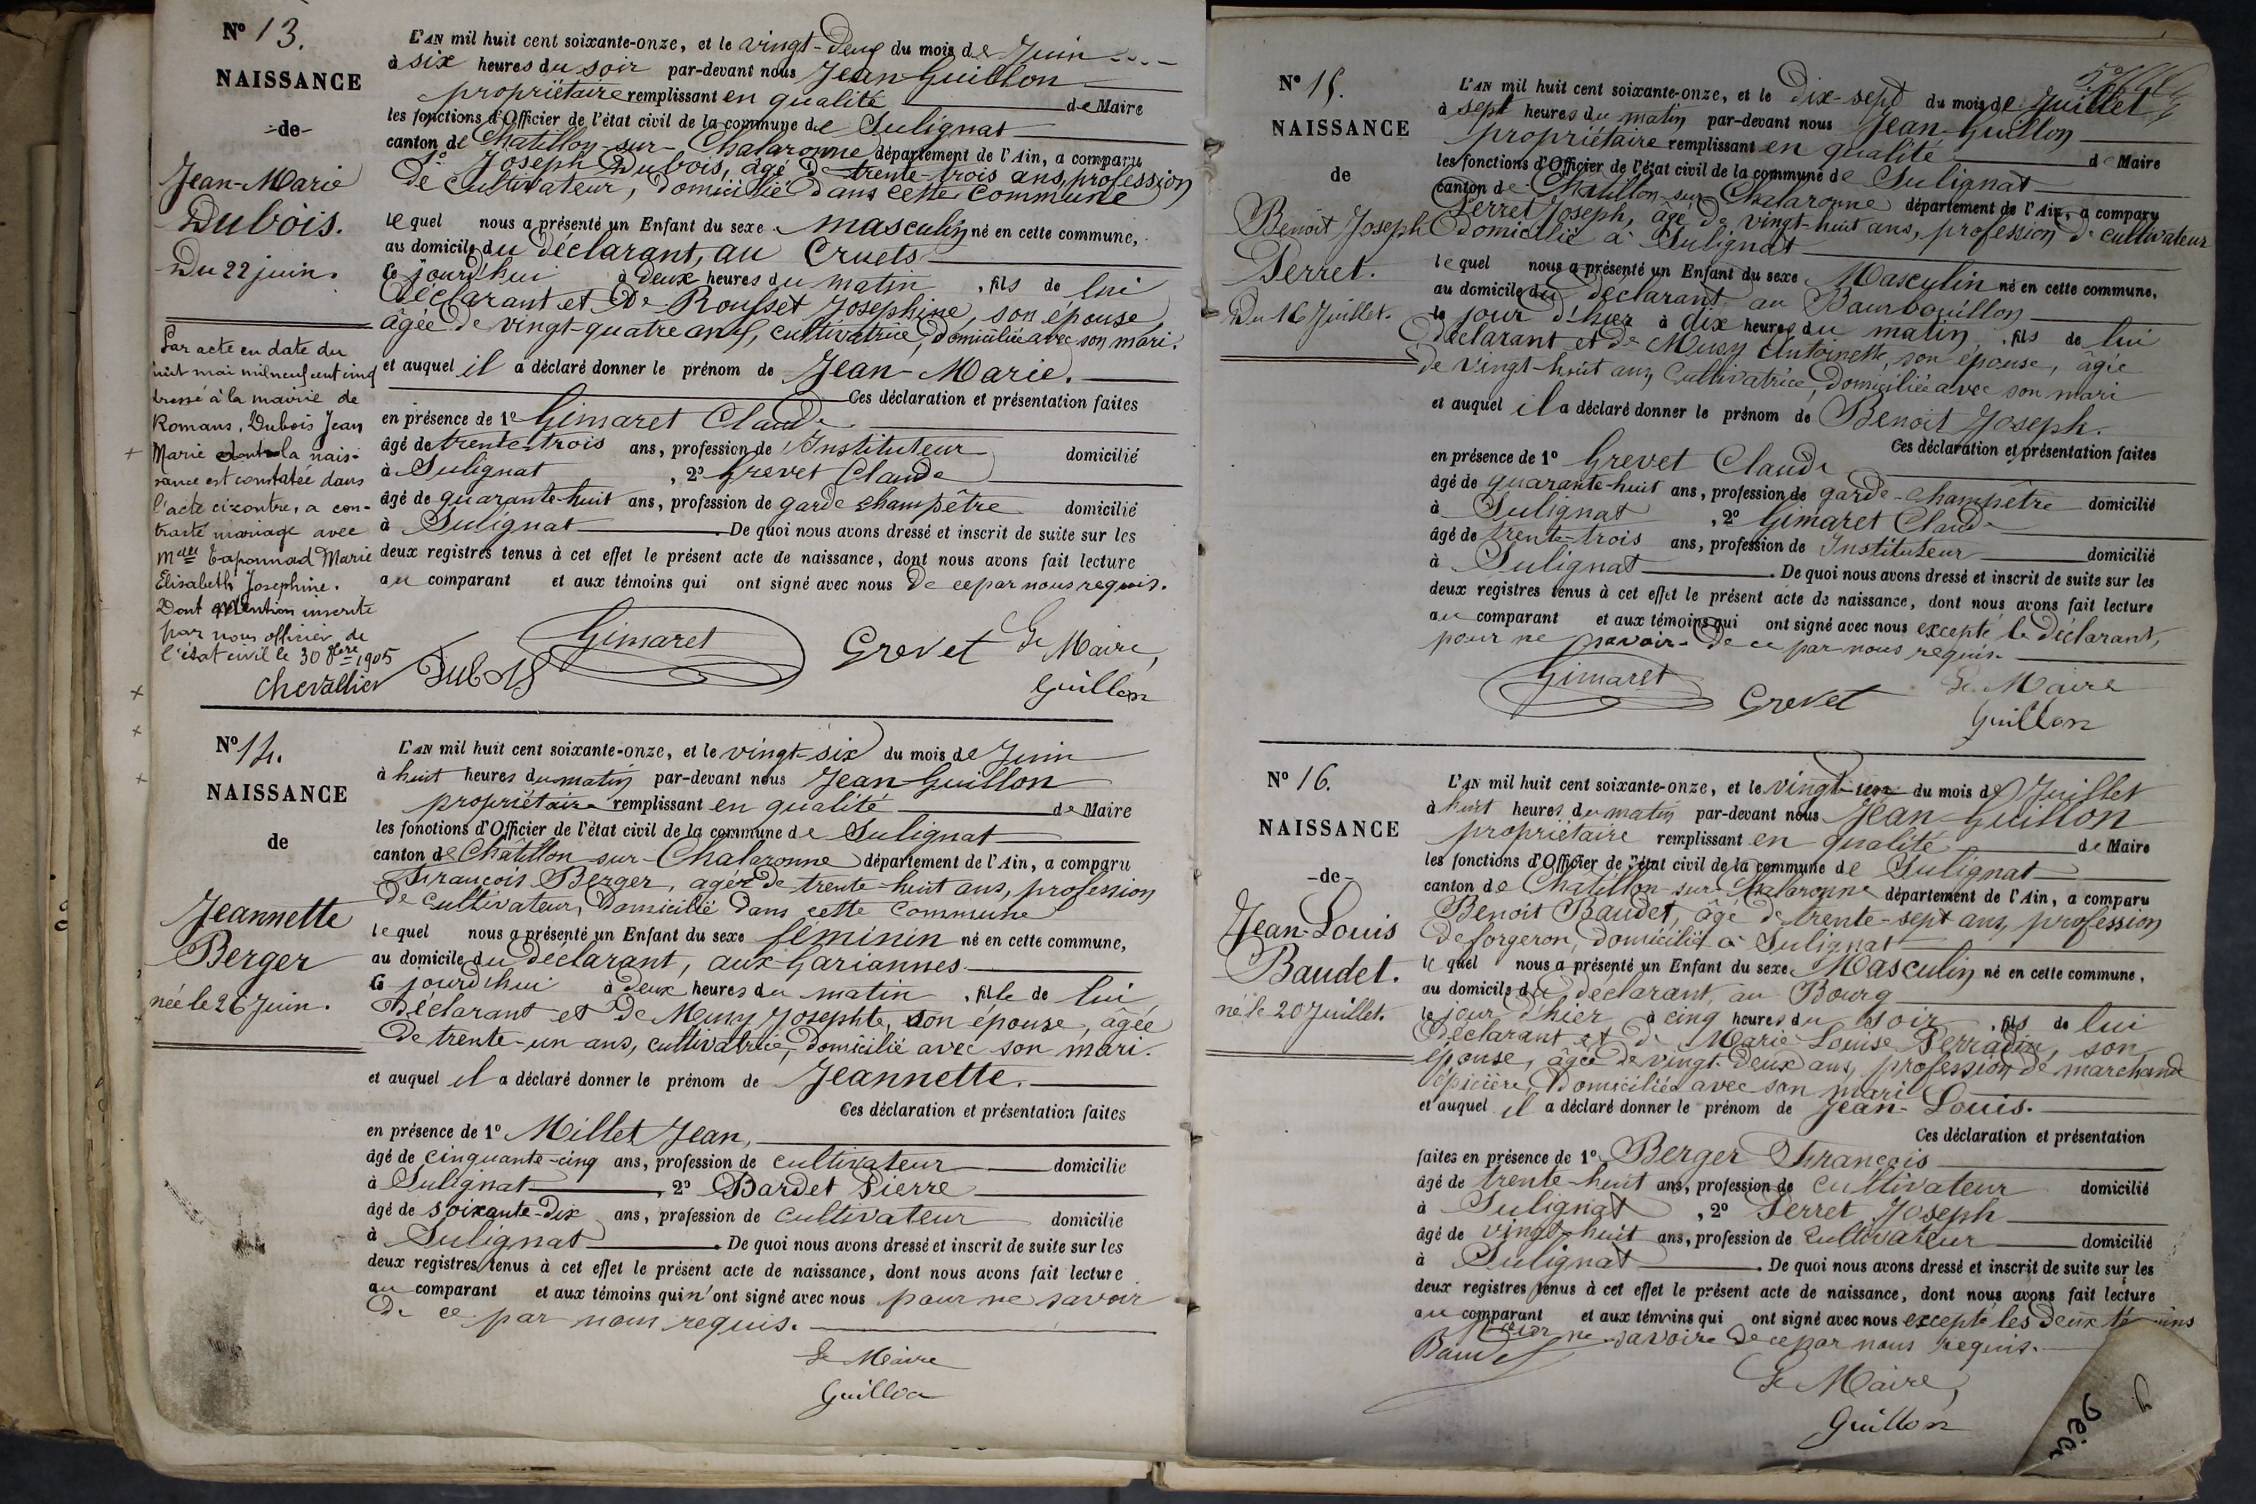 Nº 13.
NAISSANCE
-de-
Jean-Marie
Dubois.
Du 22 juin.
Par acte en date du
huit mai mil neuf cent cinq
dressé à la mairie de
Romans, Dubois Jean
Marie dont la nais-
sance est constatée dans
l'acte ci-contre, a con-
tracté mariage avec
Mdlle Taponnad Marie
Elisabeth Josephine.
Dont mention inscrite
par nous officier de
l'état civil le 30 8bre 1905
Chevallier
L'AN mil huit cent soixante-onze, et le vingt-deux du mois de Juin
à six heures du soir par-devant nous Jean Guillon
propriétaire remplissant en qualité de Maire
les fonctions d'Officier de l'état civil de la commune de Sulignat
canton de Chatillon-sur-Chalaronne département de l'Ain, a comparu
1º Joseph Dubois, âgé de trente-trois ans, profession
de cultivateur, domicilié dans cette commune
lequel nous a présenté un Enfant du sexe masculin né en cette commune,
au domicile du déclarant, au Cruets
ce jourd'hui à deux heures du matin, fils de lui
déclarant et de Rousset Josephine, son épouse,
âgée de vingt-quatre ans, cultivatrice, domiciliée avec son mari.
et auquel il a déclaré donner le prénom de Jean-Marie.
Ces déclaration et présentation faites
en présence de 1º Gimaret Claude
âgé de trente-trois ans, profession de Instituteur domicilié
à Sulignat, 2º Grevet Claude
âgé de quarante-huit ans, profession de garde champêtre domicilié
à Sulignat. De quoi nous avons dressé et inscrit de suite sur les
deux registres tenus à cet effet le présent acte de naissance, dont nous avons fait lecture
au comparant et aux témoins qui ont signé avec nous de ce par nous requis.
Dubois Gimaret Grevet Le Maire,
Guillon
Nº 14.
NAISSANCE
de
Jeannette
Berger
née le 26 Juin.
L'AN mil huit cent soixante-onze, et le vingt-six du mois de Juin
à huit heures du matin par-devant nous Jean Guillon
propriétaire remplissant en qualité de Maire
les fonctions d'Officier de l'état civil de la commune de Sulignat
canton de Châtillon-sur-Chalaronne département de l'Ain, a comparu
François Berger, agée de trente-huit ans, profession
de cultivateur, domicilié dans cette commune
lequel nous a présenté un Enfant du sexe féminin né en cette commune,
au domicile du déclarant, aux Gariannes
Ce jourd'hui à deux heures du matin, fille de lui
déclarant et de Muny Josephte, son épouse, âgée
de trente-un ans, cultivatrice, domicilié avec son mari.
et auquel il a déclaré donner le prénom de Jeannette.
Ces déclaration et présentation faites
en présence de 1º Millet Jean,
âgé de cinquante-cinq ans, profession de cultivateur domicilié
à Sulignat, 2º Bardet Pierre
âgé de soixante-dix ans, profession de cultivateur domicilié
à Sulignat. De quoi nous avons dressé et inscrit de suite sur les
deux registres tenus à cet effet le présent acte de naissance, dont nous avons fait lecture
au comparant et aux témoins qui n'ont signé avec nous pour ne savoir
de ce par nous requis.
Le Maire
Guillon
Nº 15.
NAISSANCE
de
Benoit Joseph
Perret.
Du 16 Juillet.
L'AN mil huit cent soixante-onze, et le Dix-sept du mois de Juillet
à sept heures du matin par-devant nous Jean Guillon
propriétaire remplissant en qualité de Maire
les fonctions d'Officier de l'état civil de la commune de Sulignat
canton de Chatillon-sur-Chalaronne département de l'Ain, a comparu
Perret Joseph, âgé de vingt-huit ans, profession de cultivateur
domicilié à Sulignat
lequel nous a présenté un Enfant du sexe Masculin né en cette commune,
au domicile du déclarant au Bourbouillon
le jour d'hier à dix heures du matin, fils de lui
déclarant et de Muny Antoinette, son épouse, âgée
de vingt-huit ans, Cultivatrice, domiciliée avec son mari
et auquel il a déclaré donner le prénom de Benoit Joseph.
Ces déclaration et présentation faites
en présence de 1º Grevet Claude
âgé de quarante-huit ans, profession de garde-champêtre domicilié
à Sulignat, 2º Gimaret Claude
âgé de trente-trois ans, profession de Instituteur domicilié
à Sulignat. De quoi nous avons dressé et inscrit de suite sur les
deux registres tenus à cet effet le présent acte de naissance, dont nous avons fait lecture
au comparant et aux témoins qui ont signé avec nous excepté le déclarant,
pour ne savoir de ce par nous requis.
Gimaret Grevet Le Maire
Guillon
Nº 16.
NAISSANCE
-de-
Jean-Louis
Baudet.
né le 20 Juillet.
L'AN mil huit cent soixante-onze, et le vingt-un du mois de Juillet
à huit heures du matin par-devant nous Jean Guillon
propriétaire remplissant en qualité de Maire
les fonctions d'Officier de l'état civil de la commune de Sulignat
canton de Chatillon-sur-Chalaronne département de l'Ain, a comparu
Benoit Baudet, âgé de trente-sept ans, profession
de forgeron, domicilié à Sulignat
lequel nous a présenté un Enfant du sexe Masculin né en cette commune,
au domicile du déclarant, au Bourg
le jour d'hier à cinq heures du soir, fils de lui
déclarant et de Marie Louise Perradin, son
épouse, âgée de vingt-deux ans, profession de marchande
épicière, domiciliée avec son mari
et auquel il a déclaré donner le prénom de Jean-Louis.
Ces déclaration et présentation
faites en présence de 1º Berger François
âgé de trente-huit ans, profession de cultivateur domicilié
à Sulignat, 2º Perret Joseph
âgé de vingt-huit ans, profession de cultivateur domicilié
à Sulignat. De quoi nous avons dressé et inscrit de suite sur les
deux registres tenus à cet effet le présent acte de naissance, dont nous avons fait lecture
au comparant et aux témoins qui ont signé avec nous excepté les deux témoins
pour ne savoire de ce par nous requis.
Baudet Le Maire,
Guillon